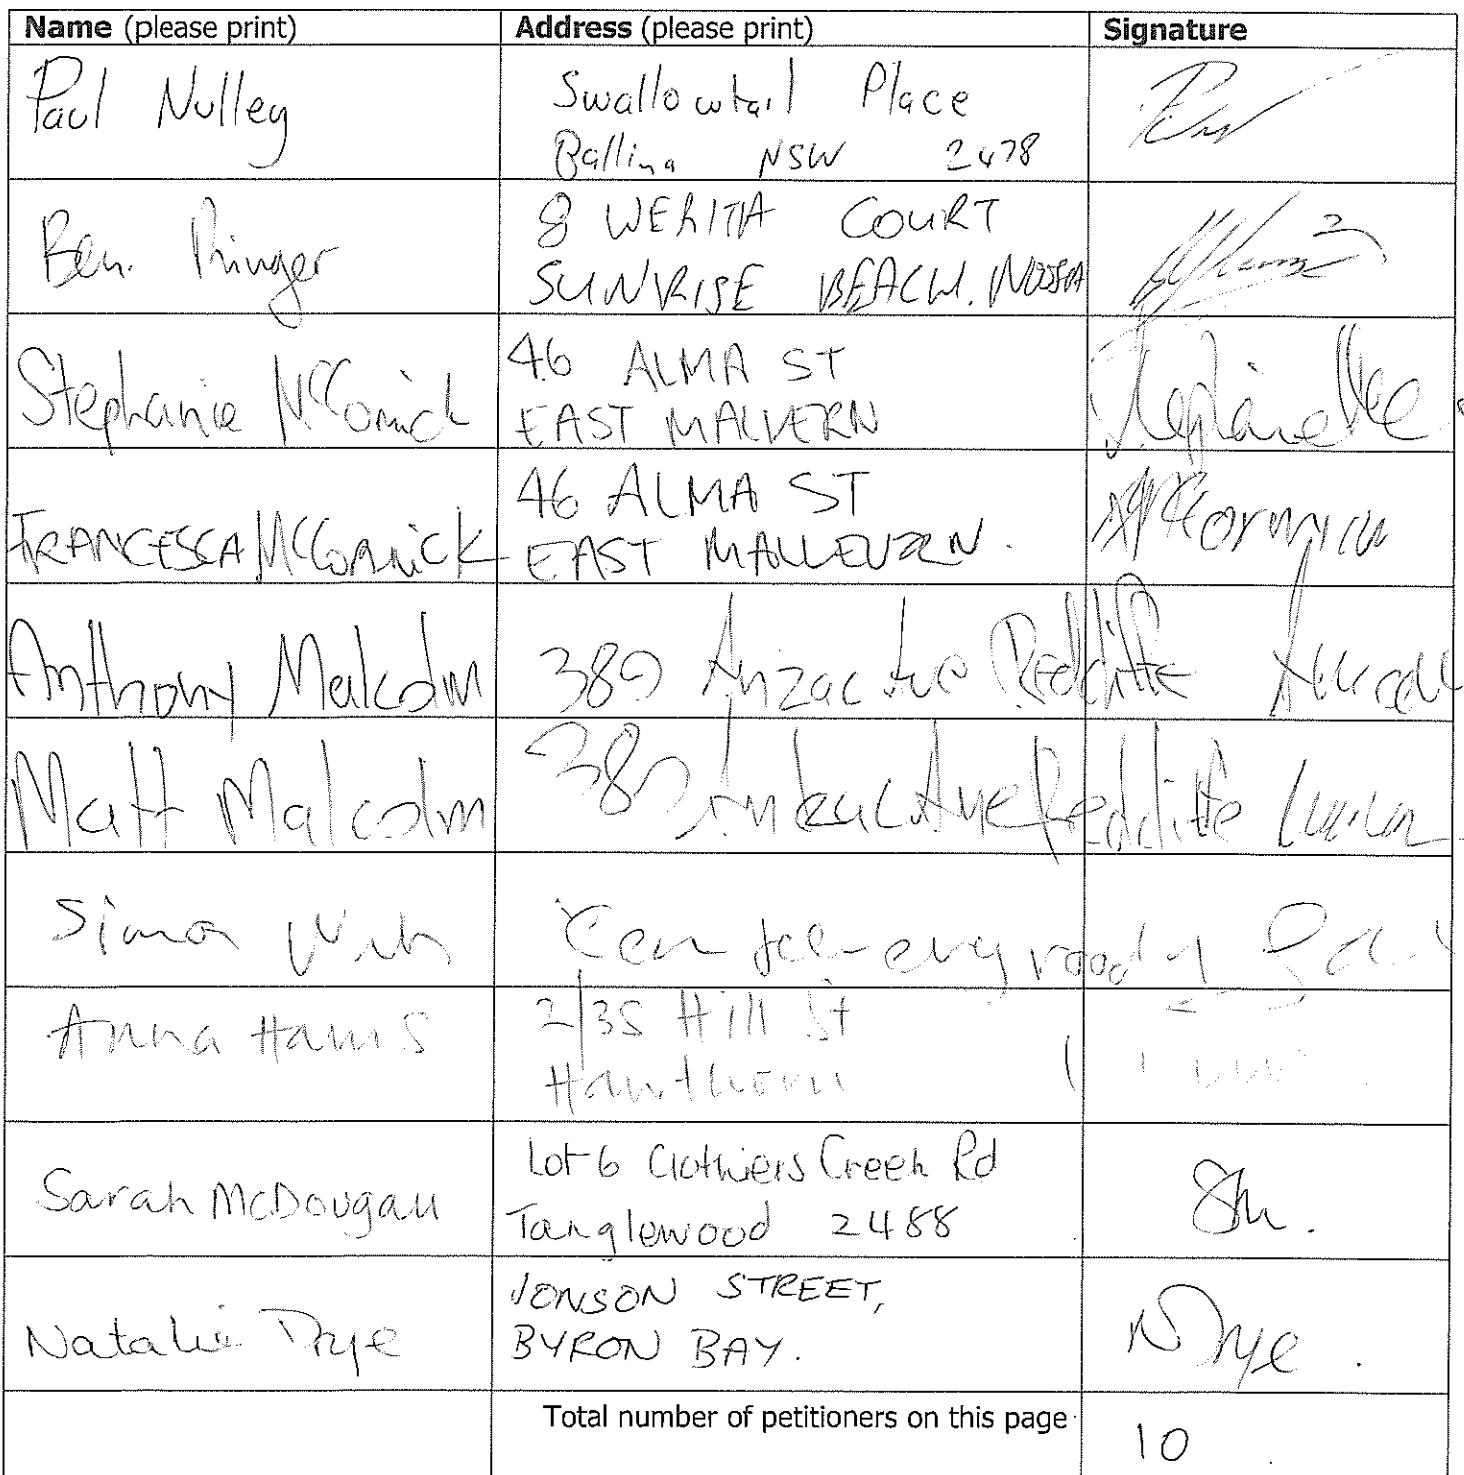 Name (please print) Address (please print) Signature
Paul Nulley
Swallowtail Place
Ballina NSW 2478
Ben Pringer
8 WERITA COURT
SUNRISE BEACH. NOOSA
Stephanie McCormick
46 ALMA ST
EAST MALVERN
FRANCESCA McCormick
46 ALMA ST
EAST MALLEVERN.
McCormick
Anthony Malcolm 389 Anzac Ave Redcliffe
Matt Malcolm 389 Anzac Ave Redcliffe
Simon
road
Anna Harris
2/35 Hill St
Hawthorn
Sarah McDougall
Lot 6 Clothiers Creek Rd
Tanglewood 2488
SM.
Natalie Drye
JONSON STREET,
BYRON BAY.
N Drye.
Total number of petitioners on this page 10